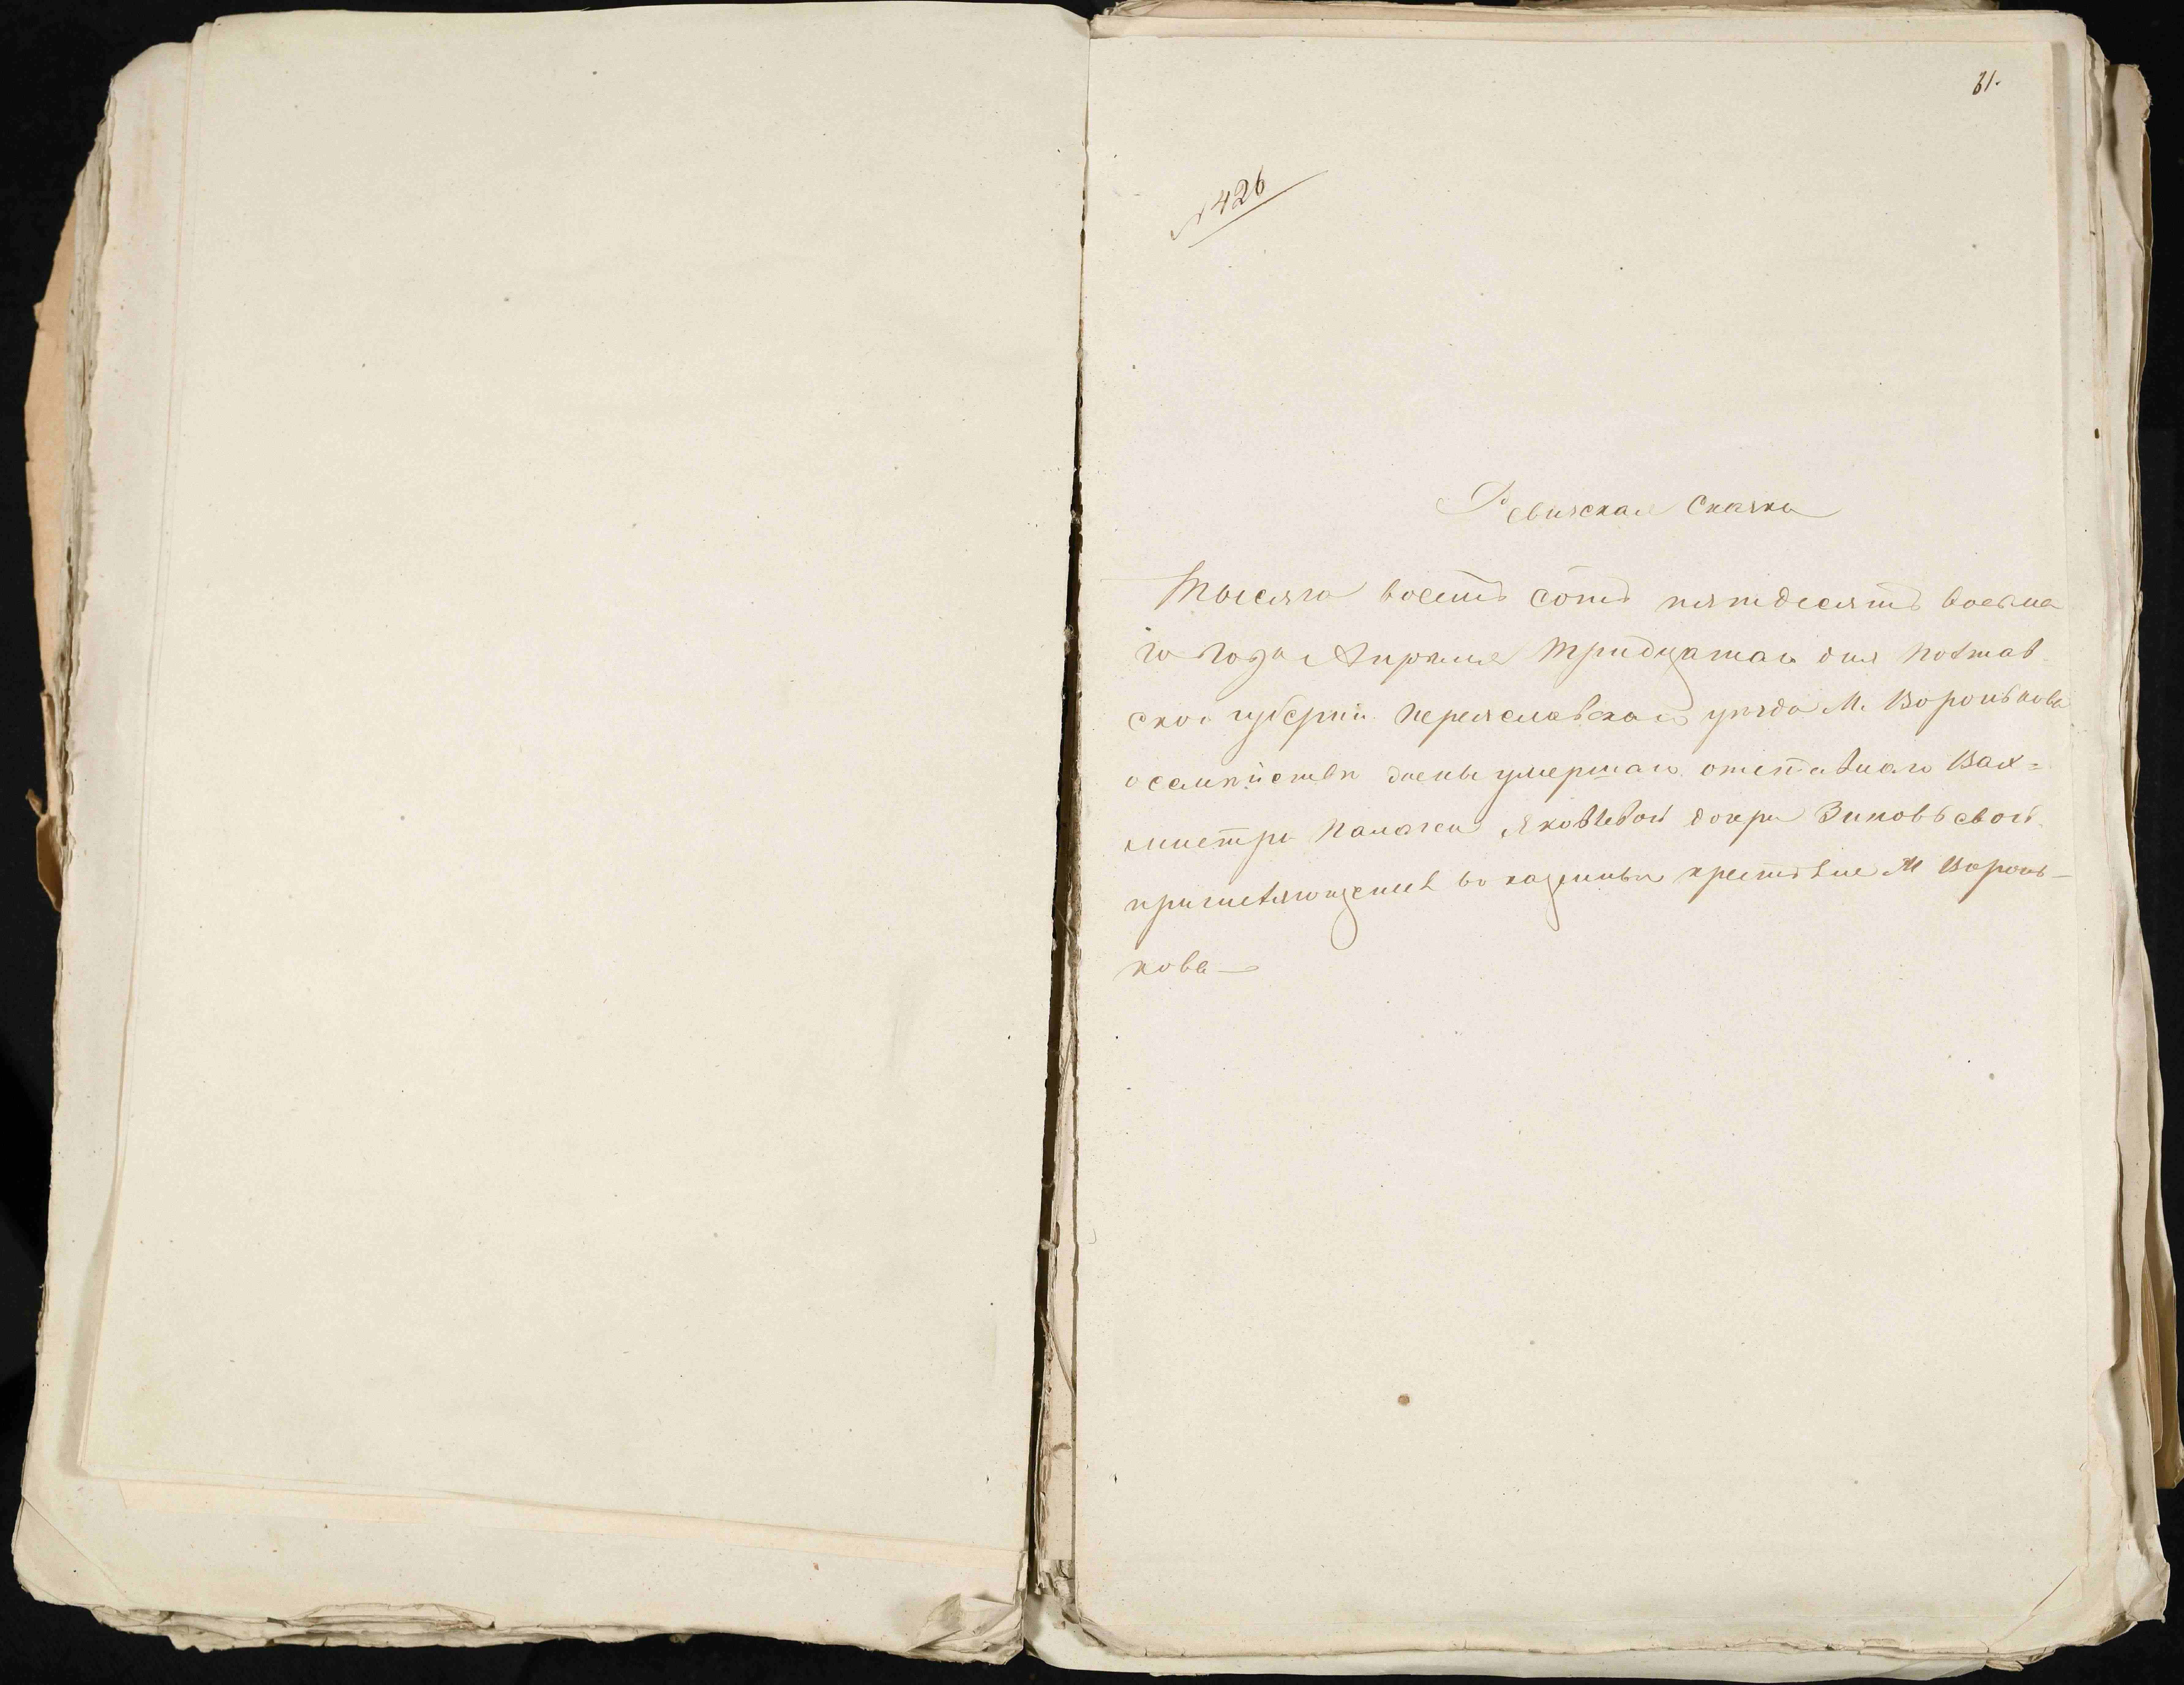 31.
№ 426
Ревизская Сказка
Тысяча восемь сотъ пятдесятъ восьма
го года Апреля тридцатаго дня Полтав
ской губернии Переяславскаго уезда М. Воронькова
о семействе жены умершаго отставнаго Вах=
мистра Палажки Яковлевой дочери Зиновьевой
причисляющейся въ казенныи крестьяне М Воронь-
кова